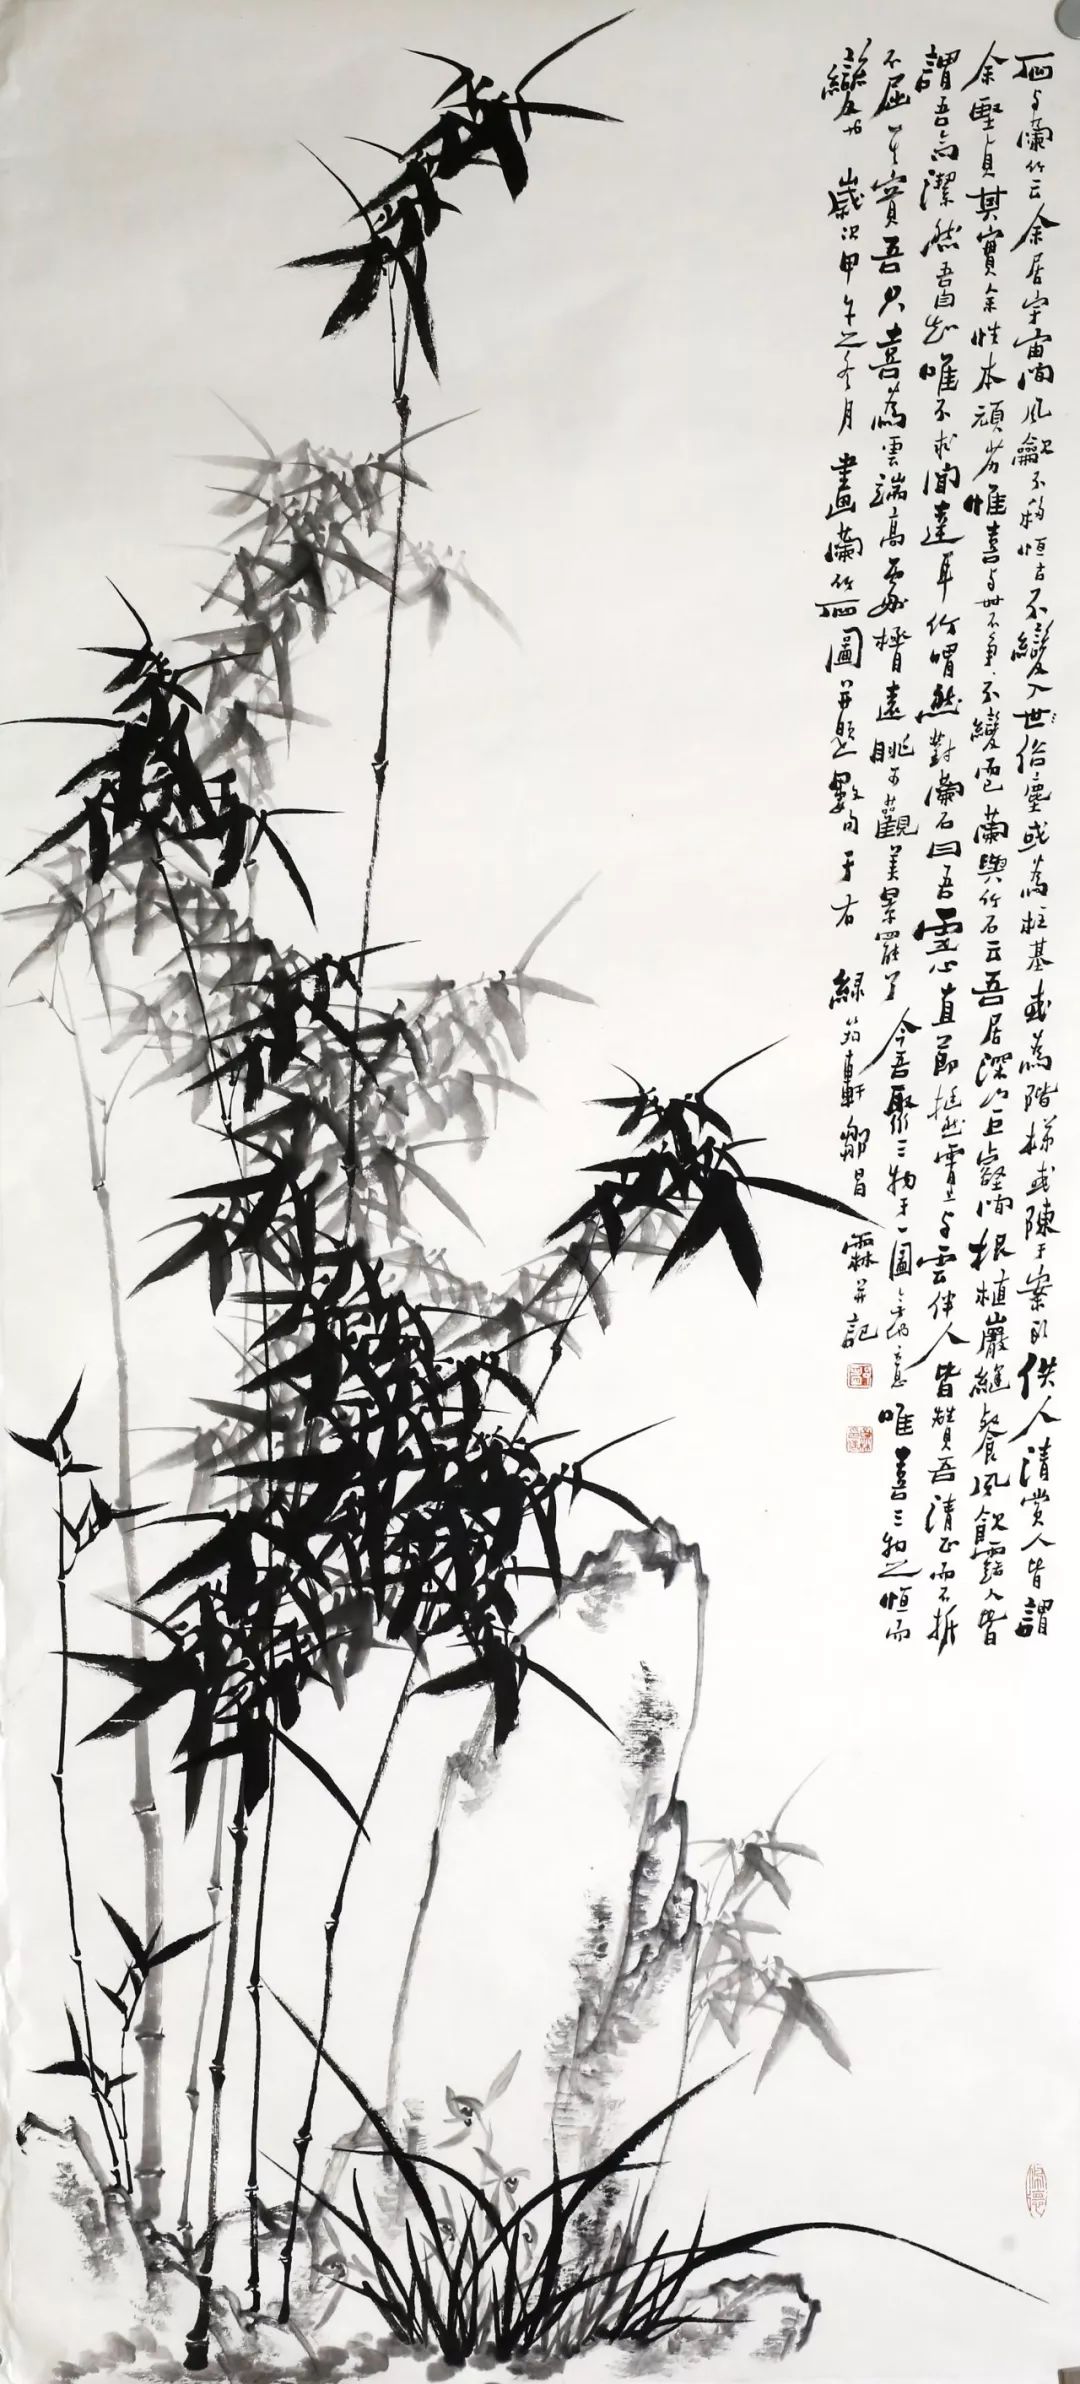 石与蘭竹云余居宇宙間風不移恒古不變入世俗塵或為柱基或為階梯或陳于案頭供人清賞人皆謂
余堅貞其實余性本頑劣惟喜与世不争不變而已蘭與竹石云吾居深山巨壑間根植巖縫餐風飲露人皆
謂吾高潔然吾自知唯不求聞達耳竹喟然對蘭石曰吾虚心直節挺然霄上与雲伴人皆贊吾清正而不折
不屈其實吾只喜為雲端高處遠眺可觀美景罷了今吾聚三物于一圖意唯喜三物之恒而
變也歲次甲午之冬月畫蘭竹石圖并題數句于右緑筠軒鄒昌霖并記